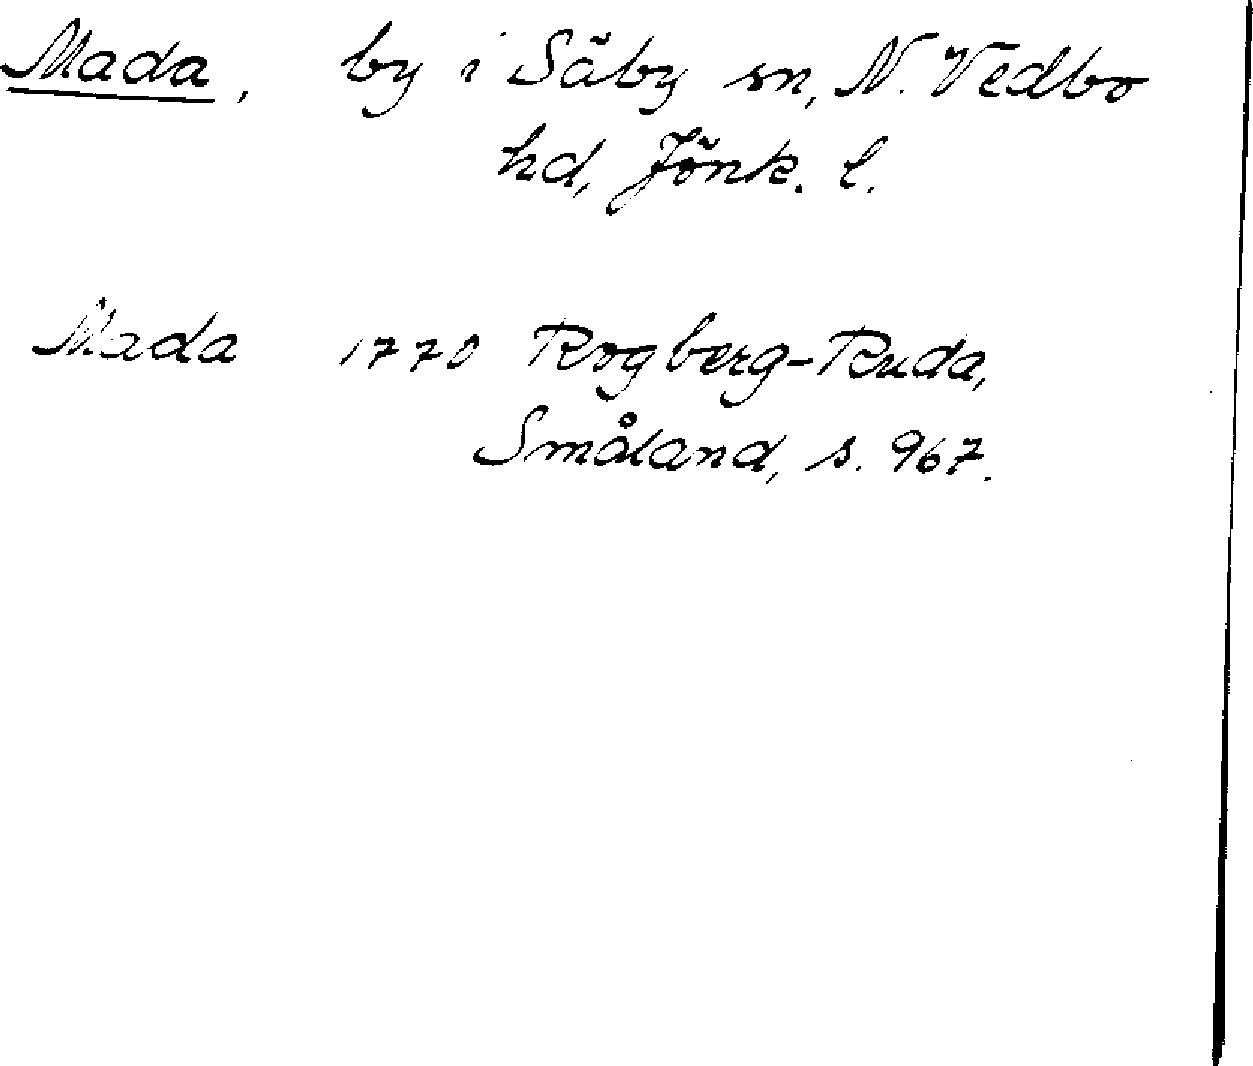 Mada, by i Säby sn, N. Vedbo
hd, Jönk. l.
Mada 1770 Rogberg-Ruda,
Småland, s. 967.